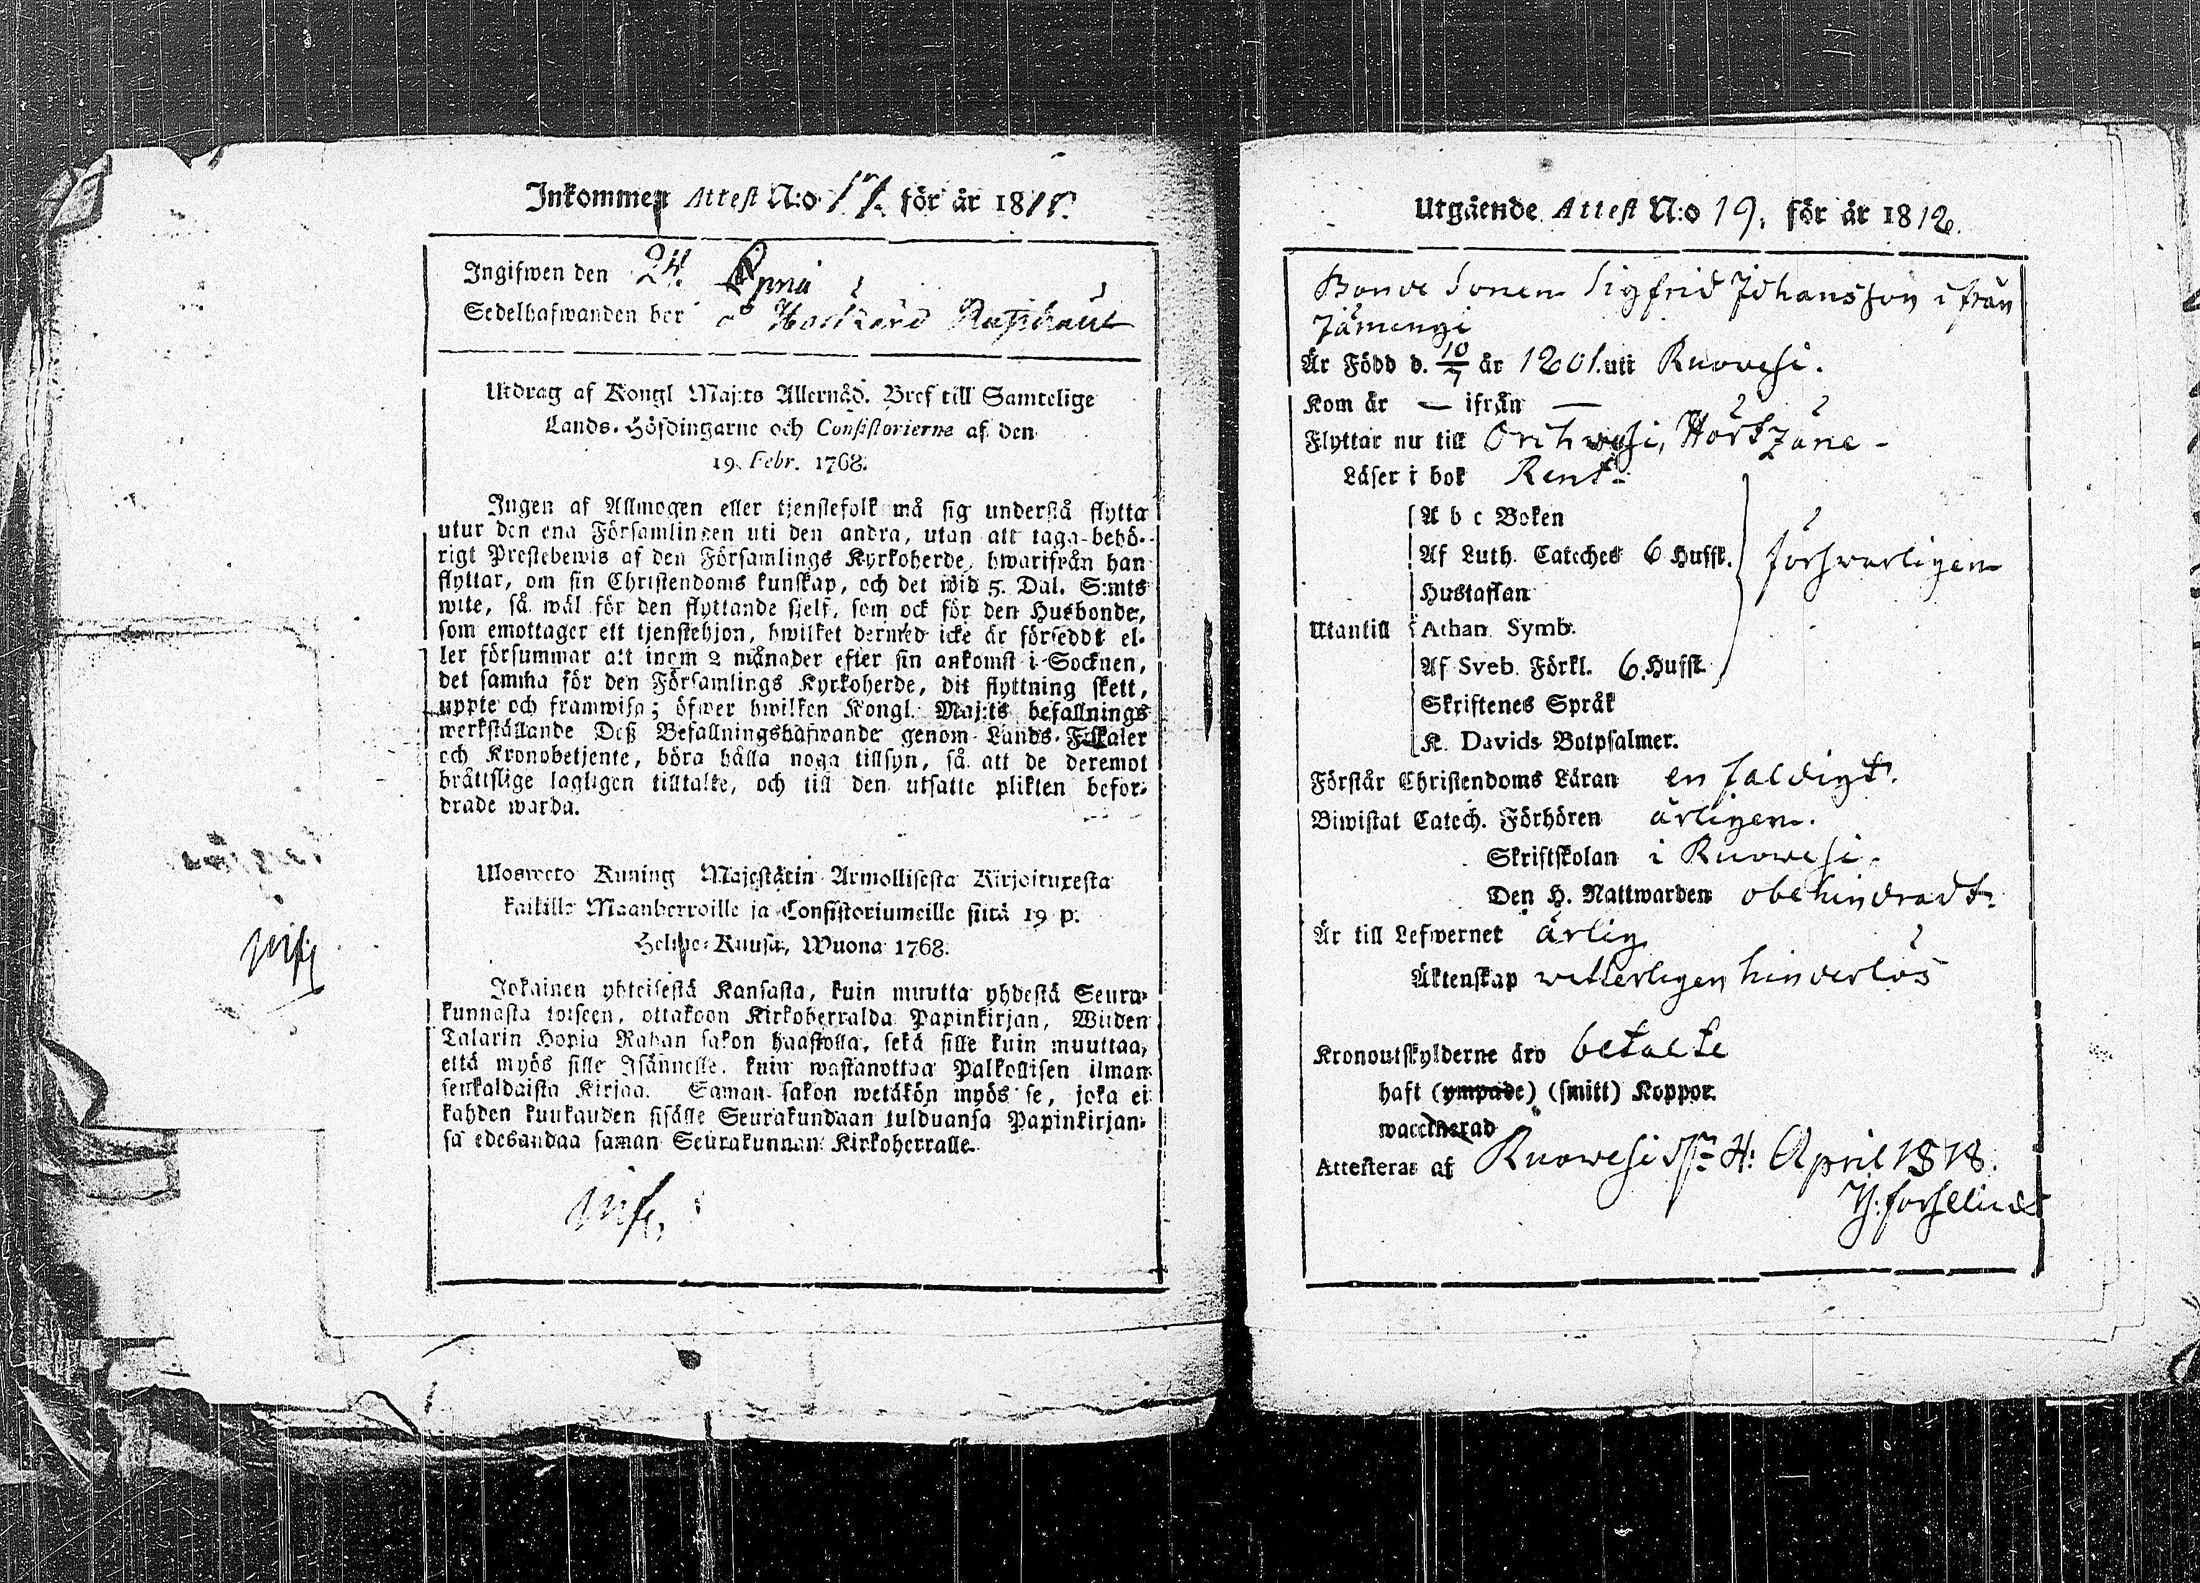 Inkommen Attest N:o 17. för år 1818.
Ingifwen den 24.
Sedelhafwanden bor på
Utdrag af Kongl Maj:ts Allernåd. Bref till Samtelige
Lands-Höfdingarne och Consistorierna af den
19. Febr. 1768.
Ingen af Allmogen eller tjenstefolk må sig understå flytta
utur den ena Församlingen uti den andra, utan att taga behö-
rigt Prestebewis af den Församlings Kyrkoherde, hwarifrån han
flyttar, om sin Christendoms kunskap, och det wid 5. Dal. S:mts
wite, så wäl för den flyttande sjelf, som ock för den Husbonde,
som emottager ett tjenstehjon, hwilket dermed icke är försedd el-
ler försummar att inom 2 månader efter sin ankomst i Socknen,
det samma för den Församlings Kyrkoherde, dit flyttning skett,
uppte och framwisa; öfwer hwilken Kongl. Maj:ts befallnings
werkställande Deß Befallningshafwande genom Lands-Fiskaler
och Kronobetjente, böra hålla noga tillsyn, så att de deremot
bråttslige lagligen tilltalte, och till den utsatte plikten befor-
drade warda.
Uloswето Kuning Majestätin Armollisesta Kirjoituxesta
kaikille Maanherroille ja Consistoriumeille siitä 19 p.
Helme-Kuusa, Wuona 1768.
Jokainen yhteisestä Kansasta, kuin muutta yhdestä Seura-
kunnasta toiseen, ottakoon Kirkoherralda Papinkirjan, Wiiden
Talarin Hopia Rahan sakon haastolla, sekä sille kuin muuttaa,
että myös sille Isännelle, kuin wastanottaa Palkollisen ilman
senkaldaista Kirjaa. Saman sakon wetäkön myös se, joka ei
kahden kuukauden sisälle Seurakundaan tulduansa Papinkirjan-
sa edesandaa saman Seurakunnan Kirkoherralle.
Utgående Attest N:o 19. för år 1818.
Bonde Sonen Sigfrid Johansson ifrån
Jämingi
Är Född d. 10/7 år 1801. uti Ruovesi.
Kom år — ifrån —
Flyttar nu till Orihwesi,
Läser i bok Rent.
A b c Boken
Af Luth. Cateches 6 Hufst. försvarligen
Hustaflan
Utantill Athan. Symb.
Af Sveb. Förkl. 6. Hufst.
Skriftenes Språk
K. Davids Botpsalmer.
Förstår Christendoms Läran enfaldigt.
Biwistat Catech. Förhören årligen.
Skriftskolan i Ruowesi.
Den H. Nattwarden obehindradt.
Är till Lefwernet ärlig
Äktenskap vetterligen hinderlös
Kronoutskylderne äro betalte
haft (ympade) (smitt) Koppor.
waccinerad
Attesteras af Ruowesi d. 4: April 1818.